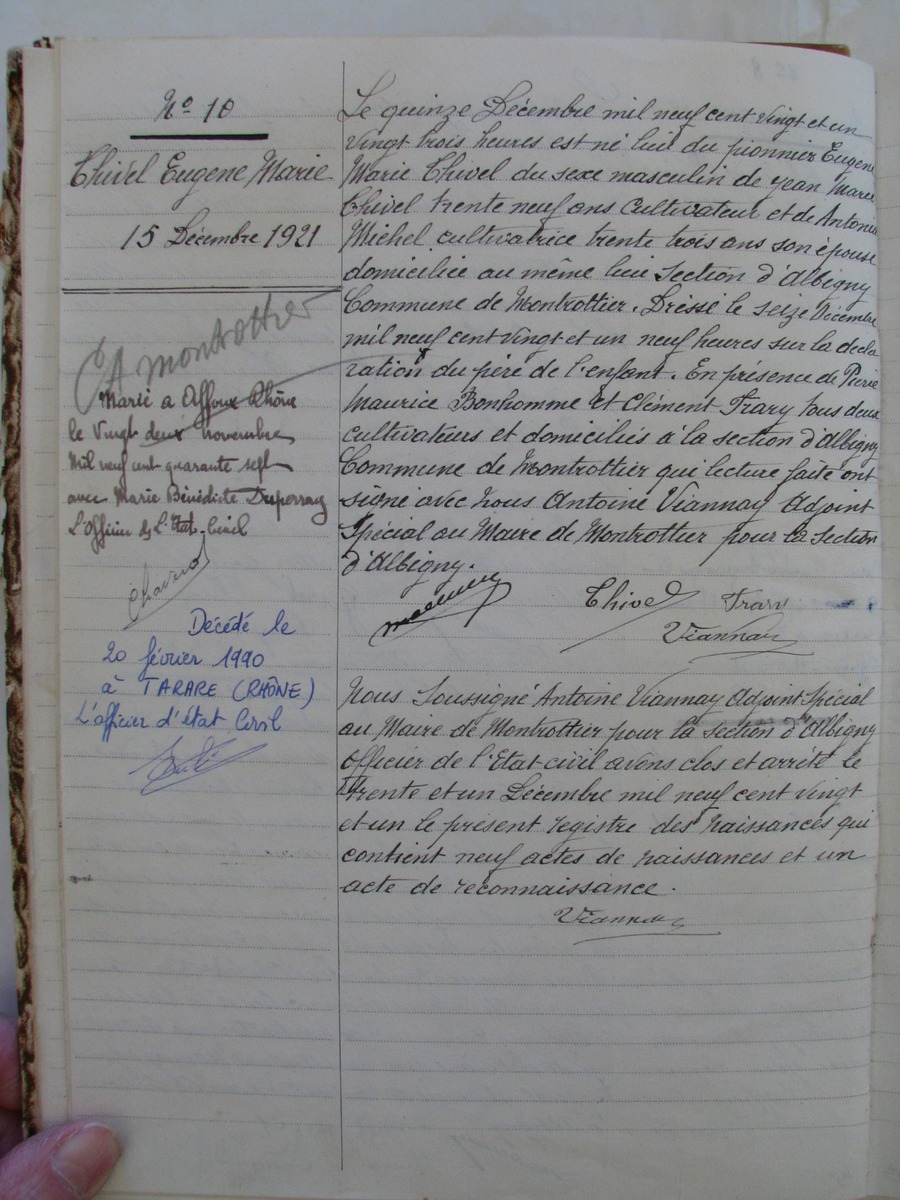 No 10
Thivel Eugene Marie
15 Décembre 1921
Montrottier
Marié a Affoux Rhône
le Vingt deux novembre
Mil neuf cent quarante sept
avec Marie Bénédicte Duperray
L'Officier de L'Etat-Civil
Décédé le
20 février 1990
à TARARE (RHÔNE)
L'officier d'état Civil
Le quinze Décembre mil neuf cent vingt et un
vingt trois heures est né lieu du pionnier Eugene
Marie Thivel du sexe masculin de Jean Marie
Thivel trente neuf ans Cultivateur et de Antonia
Michel cultivatrice trente trois ans son épouse
domicilié au même lieu Section d'Albigny
Commune de Montrottier. Dressé le seize Décembre
mil neuf cent vingt et un neuf heures sur la décla
ration du père de l'enfant. En présence de Pierre
Maurice Bonhomme et Clément Frary tous deux
cultivateurs et domiciliés à la section d'Albigny
Commune de Montrottier qui lecture faite ont
signé avec nous Antoine Viannay Adjoint
Spécial au Maire de Montrottier pour la Section
d'Albigny.
Thivel Frary
Viannay
Nous Soussigné Antoine Viannay Adjoint Spécial
au Maire de Montrottier pour la section d'Albigny
officier de l'Etat-civil avons clos et arrêté le
trente et un Décembre mil neuf cent vingt
et un le présent registre des naissances qui
contient neuf actes de naissances et un
acte de reconnaissance.
Viannay